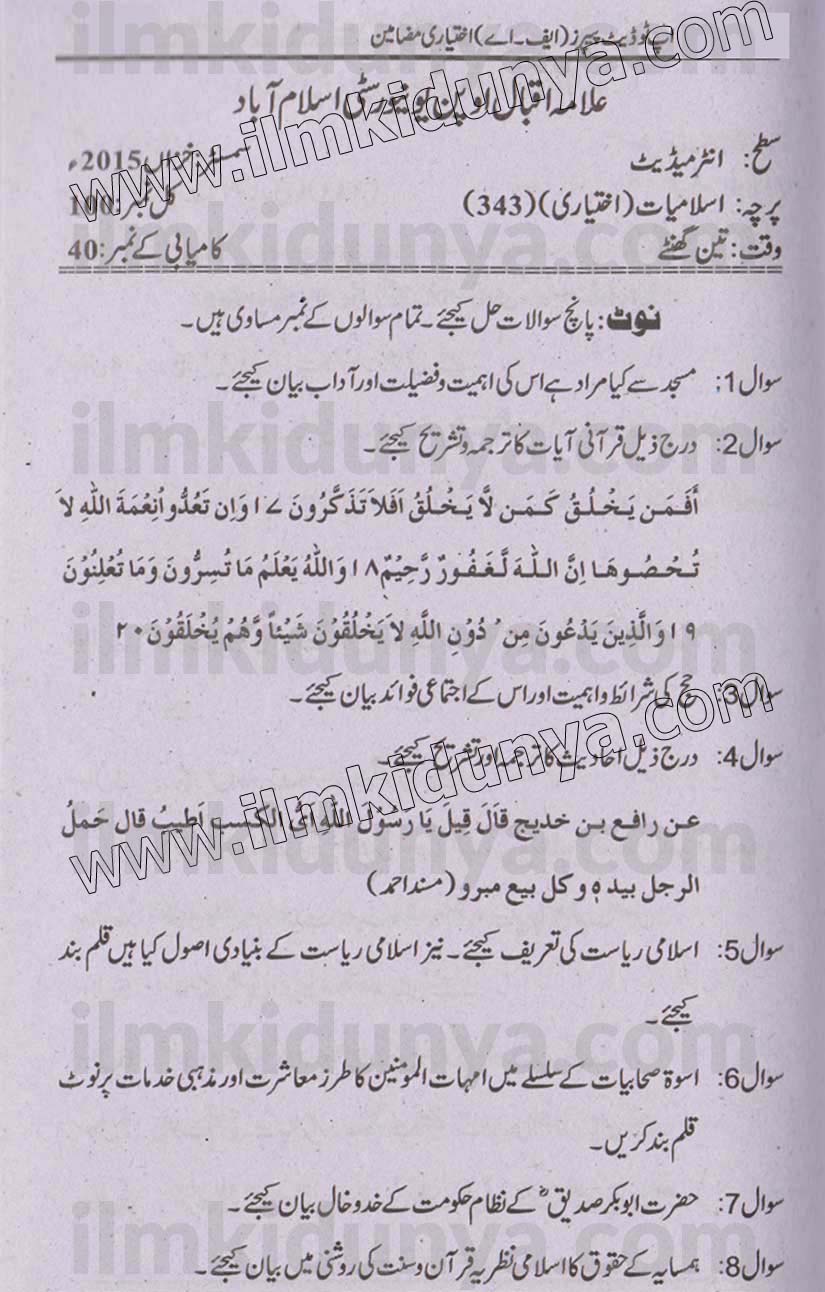 اپ ٹو ڈیٹ پیپرز (ایف۔اے) اختیاری مضامین
علامہ اقبال اوپن یونیورسٹی اسلام آباد
سطح: انٹرمیڈیٹ سمسٹر خزاں 2015ء
پرچہ: اسلامیات (اختیاری) (343) کل نمبر: 100
وقت: تین گھنٹے کامیابی کے نمبر: 40
نوٹ: پانچ سوالات حل کیجئے۔ تمام سوالوں کے نمبر مساوی ہیں۔
سوال 1: مسجد سے کیا مراد ہے اس کی اہمیت و فضیلت اور آداب بیان کیجئے۔
سوال 2: درج ذیل قرآنی آیات کا ترجمہ و تشریح کیجئے۔
أَفَمَن يَخْلُقُ كَمَن لَّا يَخْلُقُ اَفَلاَ تَذَكَّرُونَ ١٧ وَاِن تَعُدُّوا نِعْمَةَ اللهِ لاَ
تُحْصُوهَا اِنَّ اللهَ لَغَفُورٌ رَّحِيْمٌ ١٨ وَاللهُ يَعْلَمُ مَا تُسِرُّونَ وَمَا تُعْلِنُوْنَ
١٩ وَالَّذِينَ يَدْعُونَ مِنْ دُوْنِ اللَّهِ لاَ يَخْلُقُوْنَ شَيْئاً وَّهُمْ يُخْلَقُوْنَ ٢٠
سوال 3: حج کی شرائط و اہمیت اور اس کے اجتماعی فوائد بیان کیجئے۔
سوال 4: درج ذیل احادیث کا ترجمہ اور تشریح کیجئے۔
عن رافع بن خدیج قَالَ قِیلَ یَا رَسُوْلَ اللهِ اَیُّ الکسب اَطیبُ قال حَملُ
الرجل بیدہٖ و کل بیع مبرو (مسند احمد)
سوال 5: اسلامی ریاست کی تعریف کیجئے۔ نیز اسلامی ریاست کے بنیادی اصول کیا ہیں قلم بند
کیجئے۔
سوال 6: اسوۃ صحابیات کے سلسلے میں امہات المومنین کا طرز معاشرت اور مذہبی خدمات پر نوٹ
قلم بند کریں۔
سوال 7: حضرت ابوبکر صدیقؓ کے نظام حکومت کے خدوخال بیان کیجئے۔
سوال 8: ہمسایہ کے حقوق کا اسلامی نظریہ قرآن و سنت کی روشنی میں بیان کیجئے۔
www.ilmkidunya.com
www.ilmkidunya.com
ilmkidunya.com
ilmkidunya.com
ilmkidunya.com
ilmkidunya.com
ilmkidunya.com
ilmkidunya.com
ilmkidunya.com